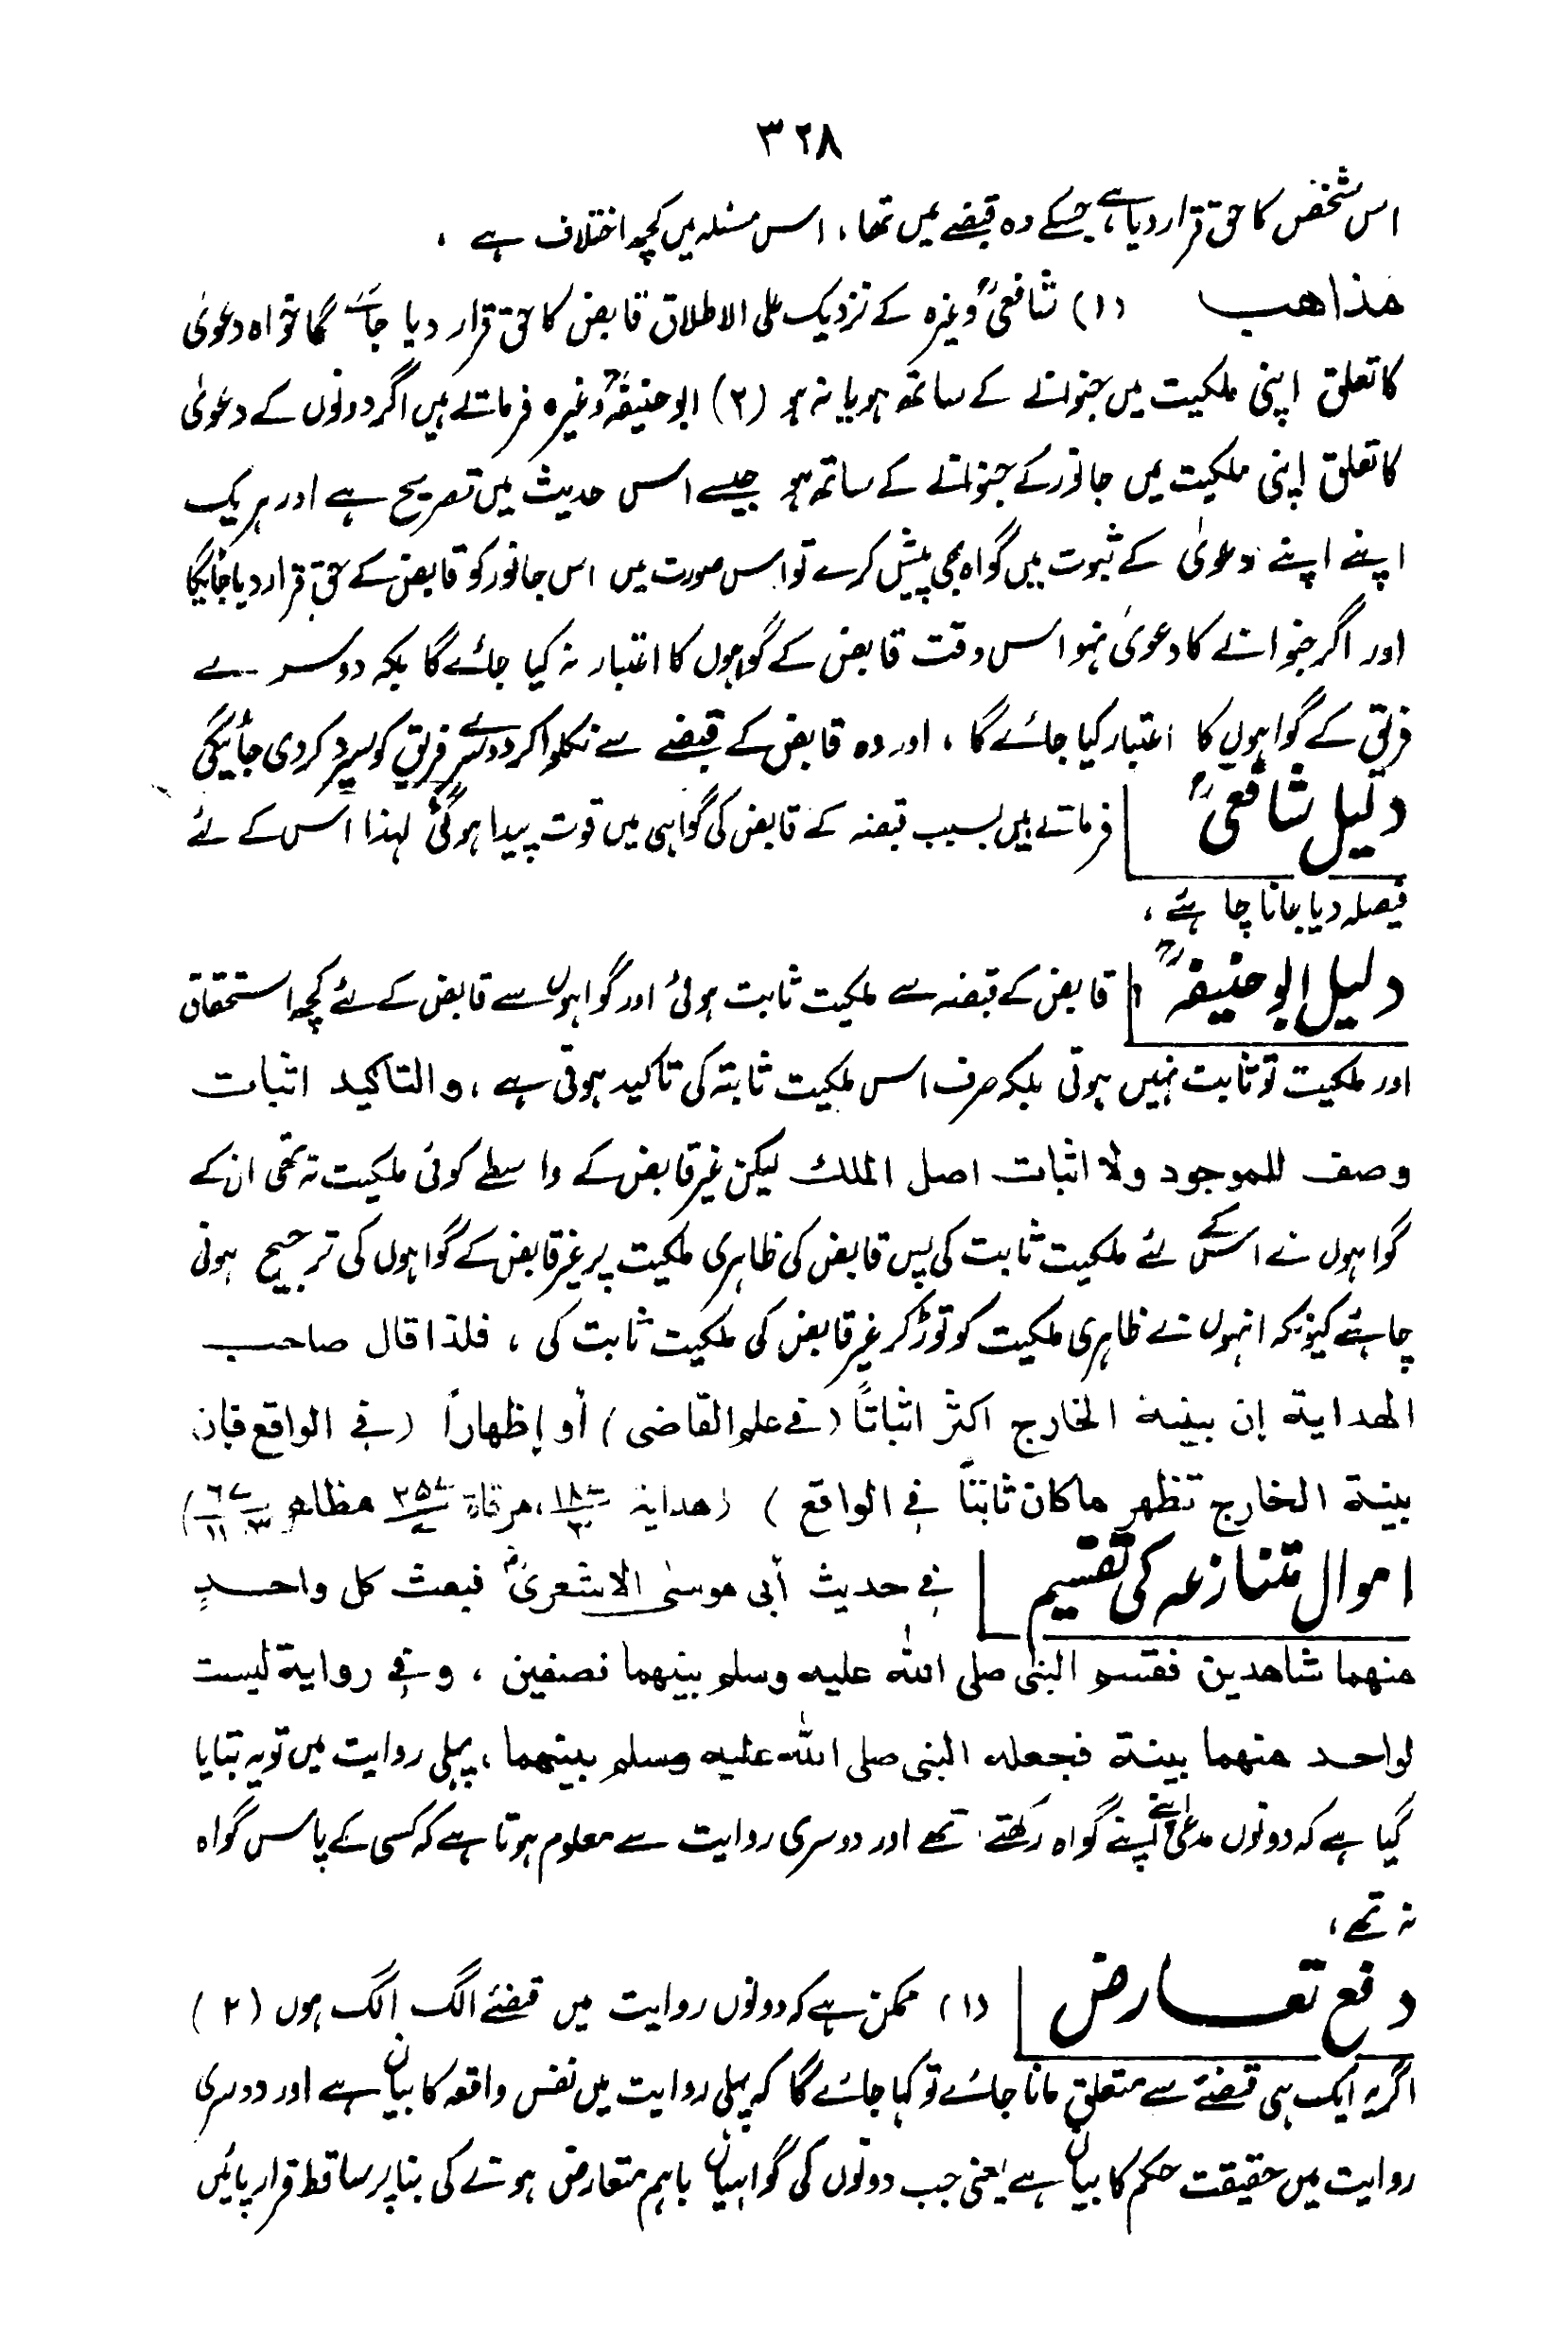 ۳۲۸
اس شخص کا حق قرار دیا ہے جسکے وہ قبضے میں تھا ، اس مسئلہ میں کچھ اختلاف ہے ،
مذاهب (۱) شافعیؒ وغیرہ کے نزدیک علی الاطلاق قابض کا حق قرار دیا جائے گا خواہ دعویٰ
کا تعلق اپنی ملکیت میں جنوانے کے ساتھ ہو یا نہ ہو (۲) ابو حنیفہؒ وغیرہ فرماتے ہیں اگر دونوں کے دعویٰ
کا تعلق اپنی ملکیت میں جانور کے جنوانے کے ساتھ ہو جیسے اس حدیث میں تصریح ہے اور ہریک
اپنے اپنے دعویٰ کے ثبوت میں گواہ بھی پیش کرے تو اس صورت میں اس جانور کو قابض کے حق قرار دیا جائیگا
اور اگر جنوانے کا دعویٰ نہو اس وقت قابض کے گواہوں کا اعتبار نہ کیا جائے گا بلکہ دوسرے
فریق کے گواہوں کا اعتبار کیا جائے گا ، اور وہ قابض کے قبضے سے نکلوا کر دوسرے فریق کو سپرد کر دی جائیگی
دلیل شافعیؒ فرماتے ہیں بسبب قبضہ کے قابض کی گواہی میں قوت پیدا ہوگئی لہذا اس کے لئے
فیصلہ دیا جانا چاہئے ،
دلیل ابو حنیفہؒ قابض کے قبضہ سے ملکیت ثابت ہوئی اور گواہوں سے قابض کے لئے کچھ استحقاق
اور ملکیت تو ثابت نہیں ہوتی بلکہ صرف اس ملکیت ثابتہ کی تاکید ہوتی ہے ، والتاکید اثبات
وصف للموجود ولا اثبات اصل الملك لیکن غیر قابض کے واسطے کوئی ملکیت نہ تھی ان کے
گواہوں نے اسکے لئے ملکیت ثابت کی پس قابض کی ظاہری ملکیت پر غیر قابض کے گواہوں کی ترجیح ہونی
چاہئے کیونکہ انہوں نے ظاہری ملکیت کو توڑ کر غیر قابض کی ملکیت ثابت کی ، فلذا قال صاحب
الهداية إن بينة الخارج اكثر اثباتًا (في علم القاضى) أو إظهاراً (في الواقع فإن
بينة الخارج تظهر ما كان ثابتًا في الواقع ) (هداية مرقاة مظاهر
اموال متنازعہ کی تقسیم في حديث أبى موسىٰ الاشعرىؓ فبعث كل واحدٍ
منهما شاهدين فقسم النبى صلى الله عليه وسلم بينهما نصفين ، وفي رواية ليست
لواحد منهما بينة فجعله النبى صلى الله عليه وسلم بينهما ، پہلی روایت میں تو یہ بتایا
گیا ہے کہ دونوں مدعی اپنے اپنے گواہ رکھتے تھے اور دوسری روایت سے معلوم ہوتا ہے کہ کسی کے پاس گواہ
نہ تھے ،
دفع تعارض (۱) ممکن ہے کہ دونوں روایت میں قضئے الگ الگ ہوں (۲)
اگر یہ ایک ہی قضئے سے متعلق مانا جائے تو کہا جائے گا کہ پہلی روایت میں نفس واقعہ کا بیان ہے اور دوسری
روایت میں حقیقت حکم کا بیان ہے یعنی جب دونوں کی گواہیاں باہم متعارض ہونے کی بنا پر ساقط قرار پائیں